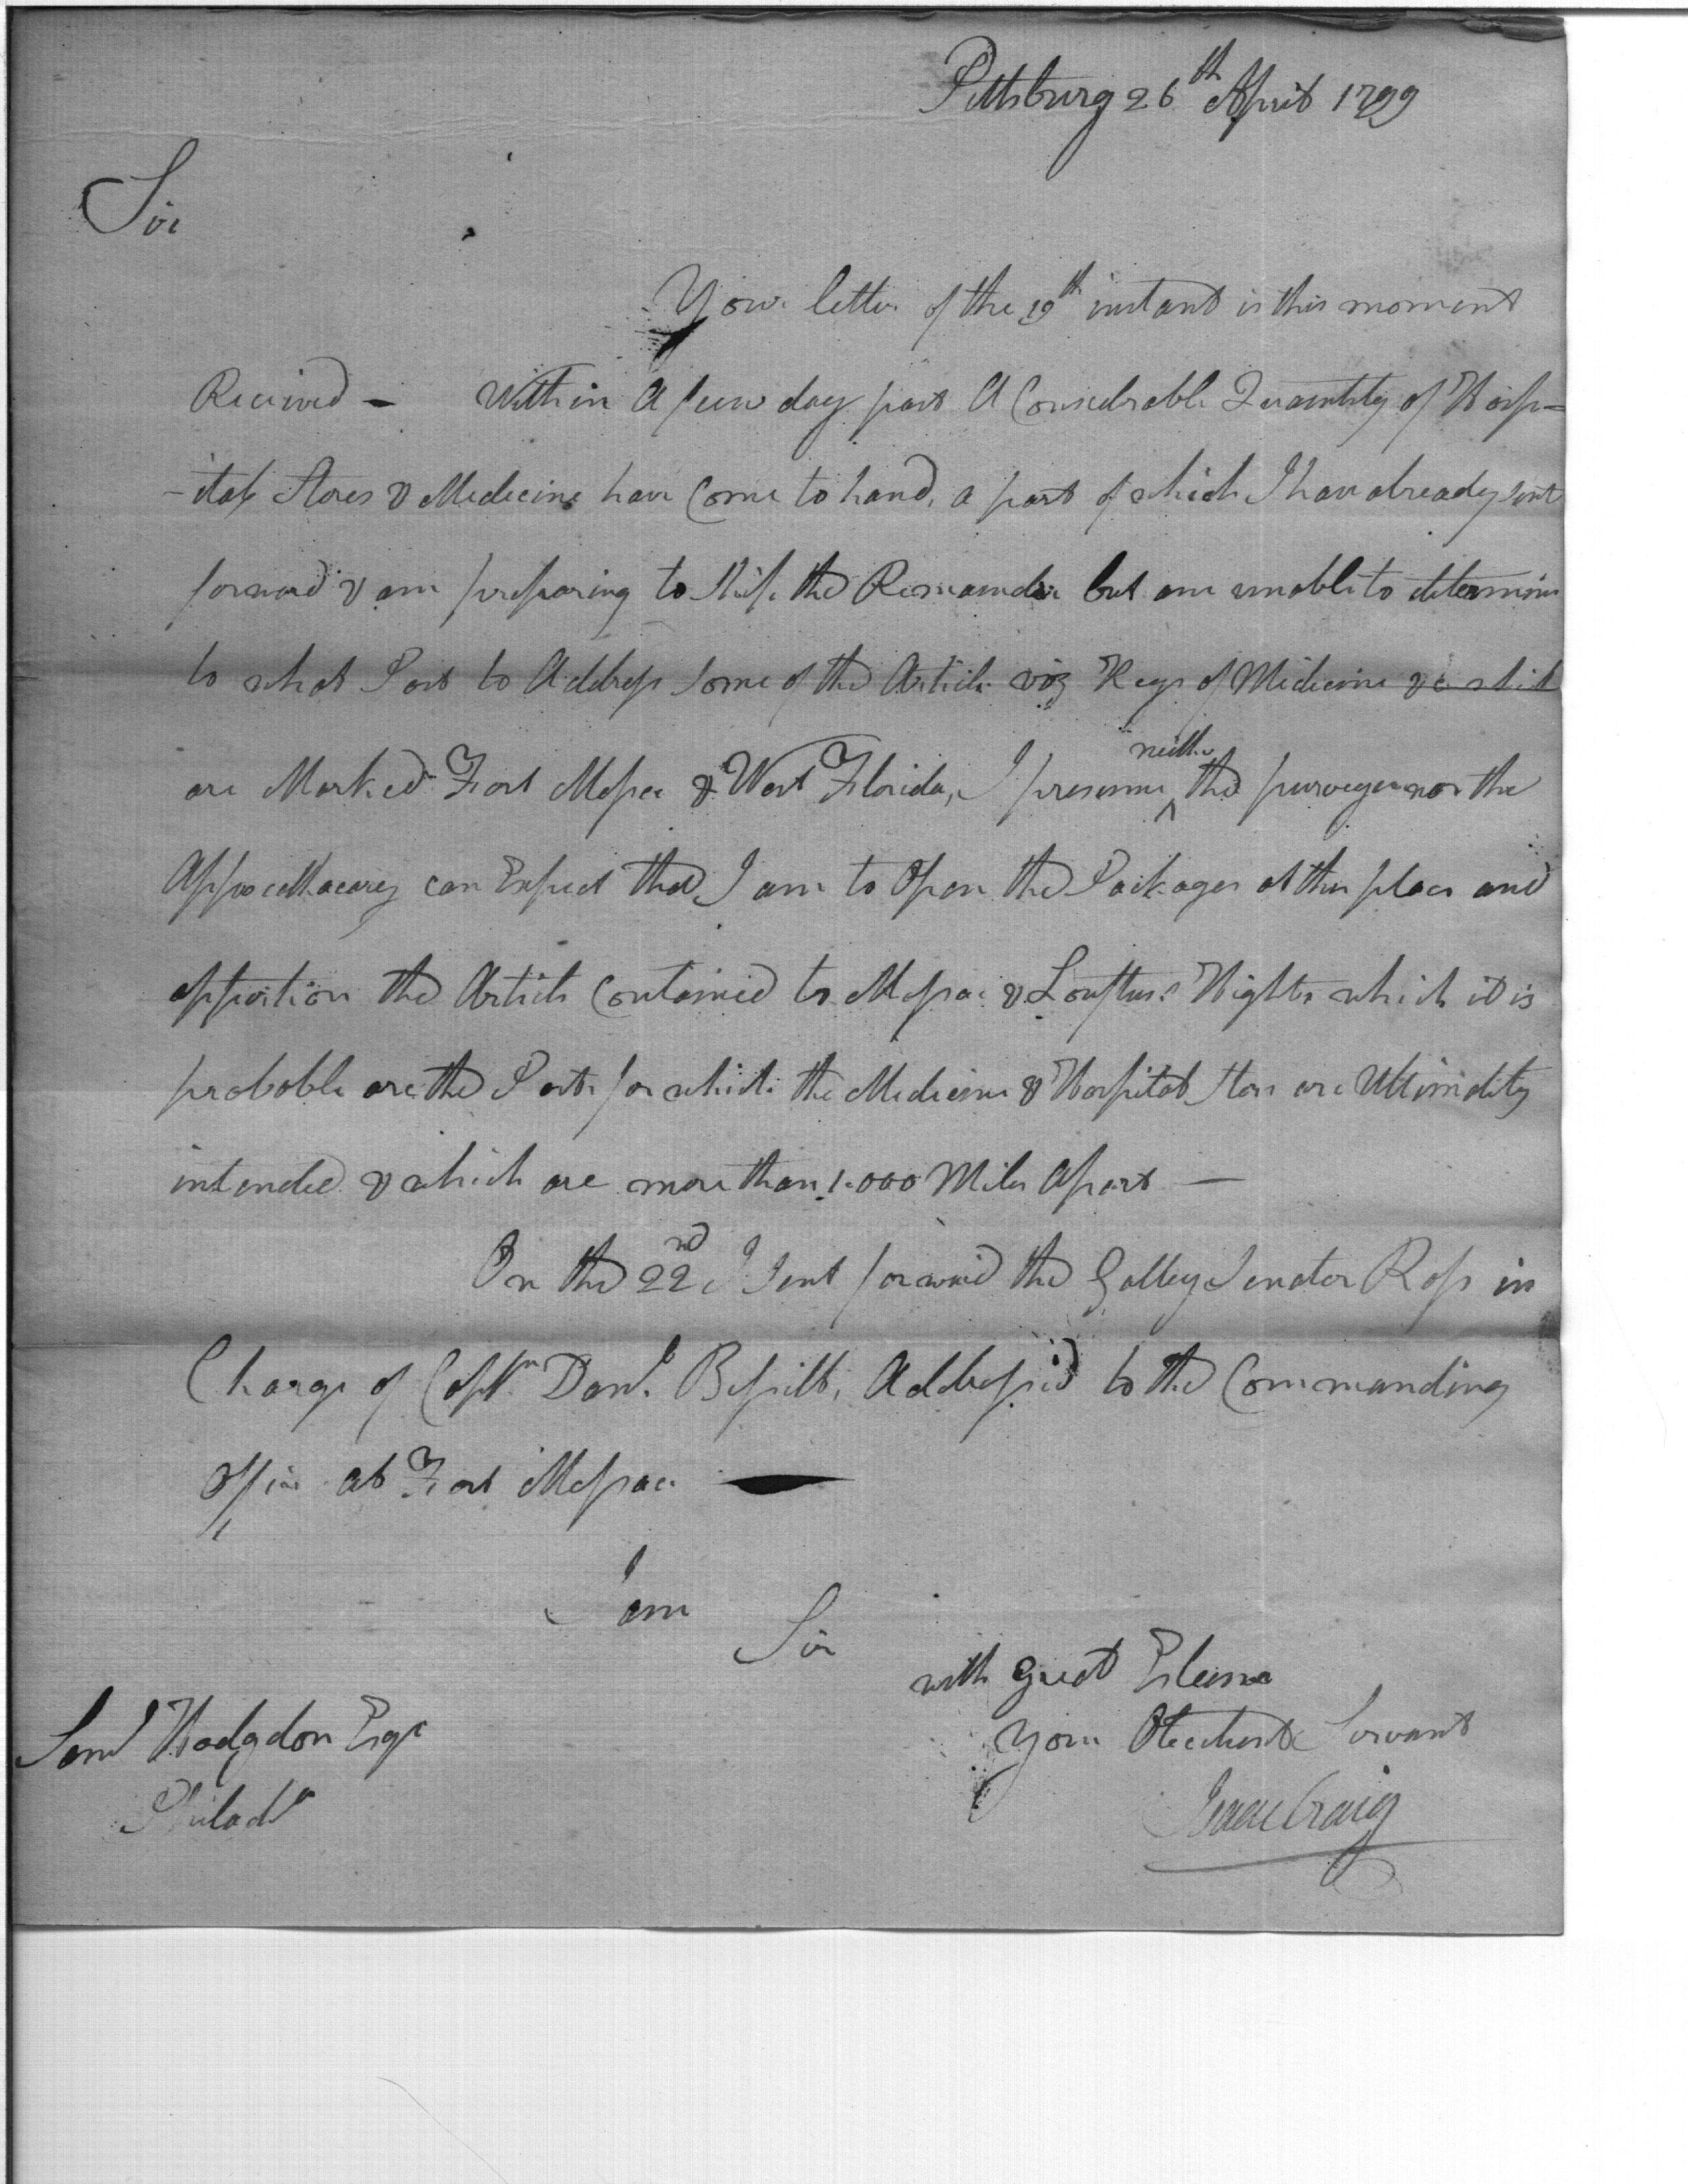 Pittsburg 26th April 1799
Sir
Your letter of the 19th instant is this moment
Received - Within A few day past A Considrable Quantity of Hosp=
-ital Stores & Medicine have Come to hand, a part of which I have already sent
forward & am preparing to Ship the Remainder but am unable to determine
to what Post to Address some of the Article viz Kegs of Medicine &c which
are Marked Fort Massac & West Florida, I presume neither the purveyer nor the
Appocathacarey can Expect that I am to Open the Packages at this place and
apportion the Article Contained to Massac & Louftus's Hights which it is
probable are the Posts for which the Medicine & Hospital Stores are Ultimately
intended & which are more than 1.000 Miles Apart —
On the 22nd I sent forward the Galley Senator Ross in
Charge of Captn Danl. Bissill, Address'd to the Commanding
Officer at Fort Massac —
I am
Sir
with great Esteem
Your Obedient Servant
Isaac Craig
Saml Hodgdon Esqr
Philada